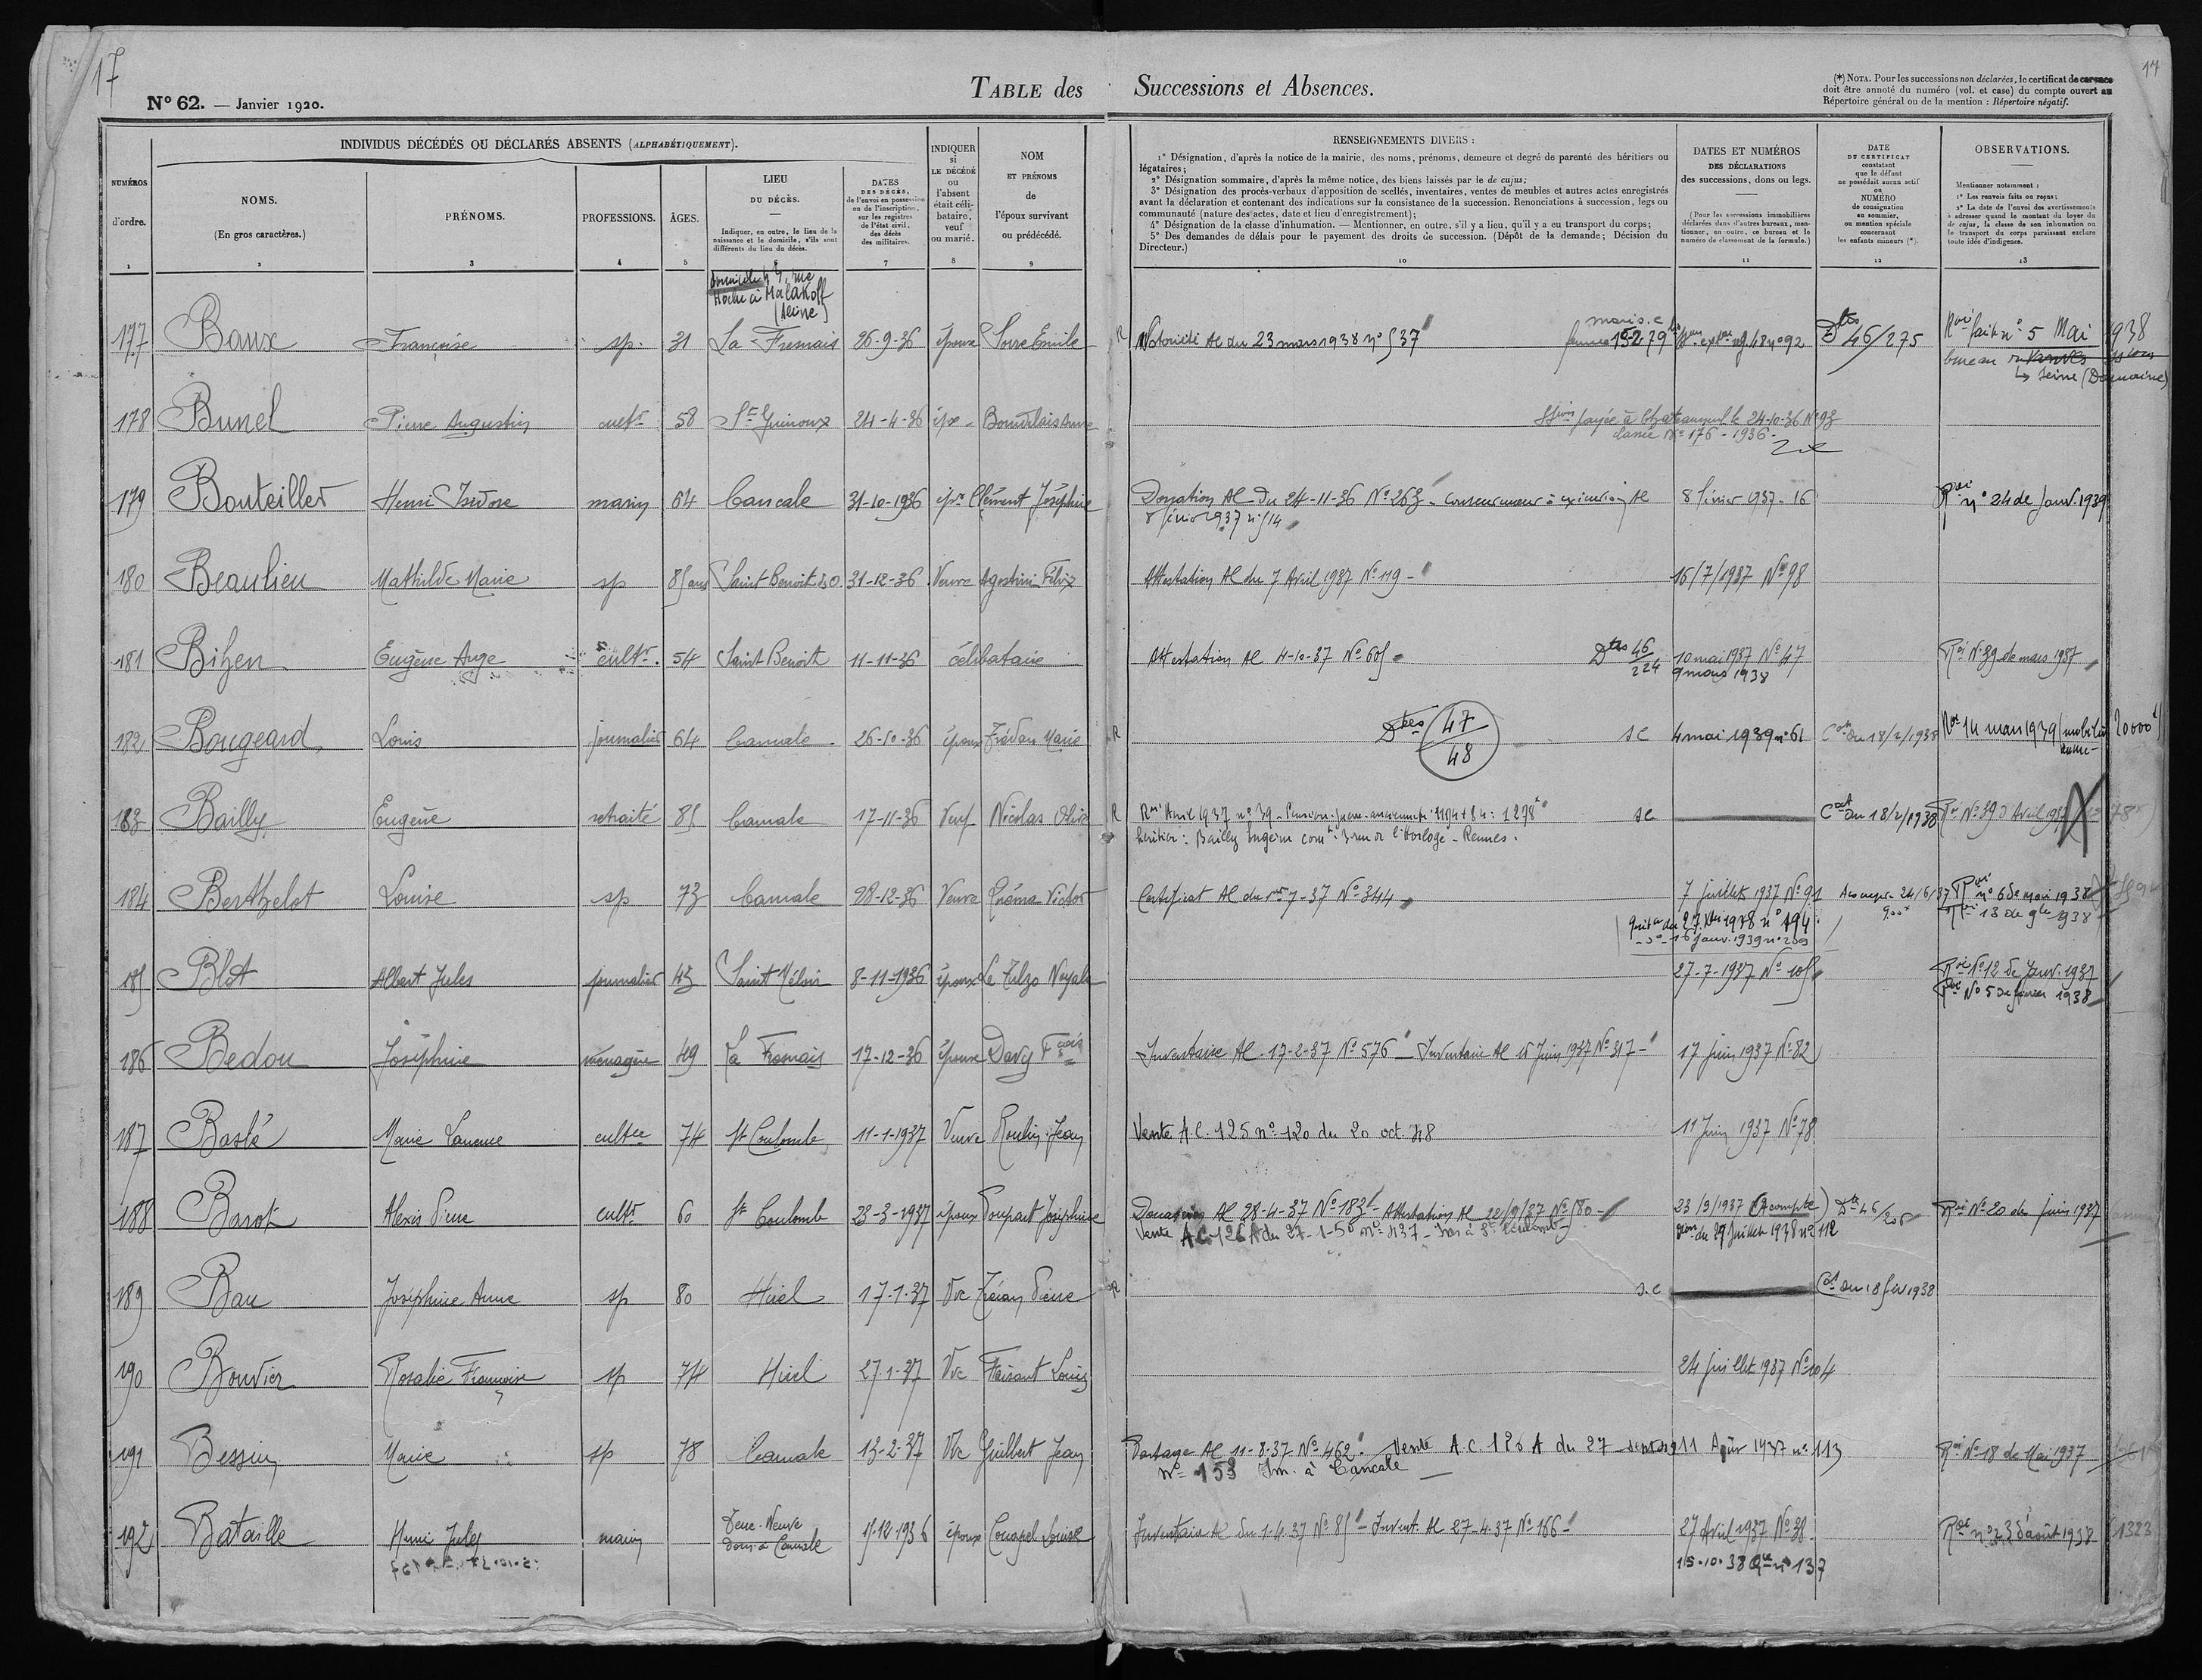 17
17
N° 62. — Janvier 1920.
TABLE des Successions et Absences.
(*) NOTA. Pour les successions non déclarées, le certificat de carence
doit être annoté du numéro (vol. et case) du compte ouvert au
Répertoire général ou de la mention : Répertoire négatif.
INDIVIDUS DÉCÉDÉS OU DÉCLARÉS ABSENTS (ALPHABÉTIQUEMENT).
NUMÉROS
d'ordre.
1
NOMS.
(En gros caractères.)
2
PRÉNOMS.
3
PROFESSIONS.
4
ÂGES.
5
LIEU
DU DÉCÈS.
Indiquer, en outre, le lieu de la
naissance et le domicile, s'ils sont
différents du lieu du décès.
6
DATES
DES DÉCÈS,
de l'envoi en possession
ou de l'inscription,
sur les registres
de l'état civil,
des décès
des militaires.
7
INDIQUER
si
LE DÉCÉDÉ
ou
l'absent
était céli-
bataire,
veuf
ou marié.
8
NOM
ET PRÉNOMS
de
l'époux survivant
ou prédécédé.
9
RENSEIGNEMENTS DIVERS :
1° Désignation, d'après la notice de la mairie, des noms, prénoms, demeure et degré de parenté des héritiers ou
légataires;
2° Désignation sommaire, d'après la même notice, des biens laissés par le de cujus;
3° Désignation des procès-verbaux d'apposition de scellés, inventaires, ventes de meubles et autres actes enregistrés
avant la déclaration et contenant des indications sur la consistance de la succession. Renonciations à succession, legs ou
communauté (nature des actes, date et lieu d'enregistrement);
4° Désignation de la classe d'inhumation. — Mentionner, en outre, s'il y a lieu, qu'il y a eu transport du corps;
5° Des demandes de délais pour le payement des droits de succession. (Dépôt de la demande; Décision du
Directeur.)
10
DATES ET NUMÉROS
DES DÉCLARATIONS
des successions, dons ou legs.
(Pour les successions immobilières
déclarées dans d'autres bureaux, men-
tionner, en outre, ce bureau et le
numéro de classement de la formule.)
11
DATE
DU CERTIFICAT
constatant
que le défunt
ne possédait aucun actif
ou
NUMÉRO
de consignation
au sommier,
ou mention spéciale
concernant
les enfants mineurs (*).
12
OBSERVATIONS.
Mentionner notamment :
1° Les renvois faits ou reçus;
2° La date de l'envoi des avertissements
à adresser quand le montant du loyer du
de cujus, la classe de son inhumation ou
le transport du corps paraissent exclure
toute idée d'indigence.
13
rue
Hoche à Malakoff
(Seine)
177 Baux Françoise sp. 31 La Fresnais 26-9-36 épouse Sorre Emile R Notoriété AC du 23 mars 1938 n° 537 46/275 Roi fait n° 5 Mai 1938
bureau
Seine (Domaine)
178 Bunel Pierre Augustin cultr 58 St Guinoux 24-4-36 épx payée à Chateauneuf le 24-10-36 N° 93
N° 176 - 1936
179 Bouteiller Henri Isidore marin 64 Cancale 31-10-1936 épx Clément Joséphine Donation AC du 24-11-36 N° 263 8 février 1937 - 16 Roi n° 24 de Janv. 1939
8 février 1937 n° 514
180 Beaulieu Mathilde Marie sp 85 ans Saint Benoit d.O. 31-12-36 Veuve Agostini Félix Attestation AC du 7 Avril 1937 N° 119 - 16/7/1937 N° 98
181 Bihen Eugène Ange cultr. 54 Saint Benoit 11-11-36 célibataire Attestation AC 4-10-37 N° 605 46 10 mai 1937 N° 47 Roi N° 39 de mars 1937
224 9 mars 1938
182 Bougeard Louis journalier 64 Cancale 26-10-36 époux Marie R 47 sc 4 mai 1939 n° 61 Cat du 18/2/1938 14 mars 1939 20000
48
183 Bailly Eugène retraité 85 Cancale 17-11-36 Veuf Nicolas R Roi Avril 1937 n° 39 1194 + 84 : 1278 sc Cat du 18/2/1938 Roi N° 39 d'Avril 1937
héritier : Bailly Eugène 3 rue de l'Horloge - Rennes.
184 Berthelot Louise sp 73 Cancale 28-12-36 Veuve Victor Certificat AC du 1er 7-37 N° 344 7 juillet 1937 N° 91 24/6/37 Roi n° 6 de mai 1938
900 Roi 13 de 9bre 1938
n° 194
16 janv. 1939 n° 209
185 Blot Albert Jules journalier 43 Saint Méloir 8-11-1936 époux 27-7-1937 N° 105 Roi N° 12 de Janv. 1937
Roi N° 5 de février 1938
186 Bedou Joséphine ménagère 49 La Fresnais 17-12-36 épouse Davy Fçois Inventaire AC 17-2-37 N° 576 - Inventaire AC 15 Juin 1937 N° 317 - 17 juin 1937 N° 82
187 Baslé Marie cultce 74 St Coulomb 11-1-1937 Veuve Roulin Jean Vente A.C. 125 n° 120 du 20 oct. 48 11 Juin 1937 N° 78
188 Barot Alexis Pierre cultr 60 St Coulomb 23-3-1937 époux Poupart Joséphine Donation AC 28-4-37 N° 183 - Attestation AC N° 580 - 23/9/1937 (Acompte) Roi N° 20 de juin 1937
Vente AC 126 A du 27-1-50 n° 437 - à St Coulomb du 29 juillet 1938 n° 112
189 Bau Joséphine Anne sp 80 Hirel 17-1-37 Vve Pierre R s.c Cat du 18 fév 1938
190 Bouvier Rosalie Françoise sp 74 Hirel 27-1-37 Vve Faisant Louis 24 juillet 1937 N° 104
191 Bessin Marie sp 78 Cancale 13-2-37 Vve Guilbert Jean Partage AC 11-8-37 N° 462. Vente A.C. 126 A du 27 11 Août 1937 n° 113 Roi N° 18 de Mai 1937
N° 153 Im. à Cancale
192 Bataille Henri Jules marin Terre-Neuve 1936 époux Louise Inventaire AC du 1-4-37 N° 85 - Invent. AC 27-4-37 N° 166 - 27 Avril 1937 N° 38 Roi n° 23 d'août 1938 1323
dom. à Cancale
15-10-38 n° 137